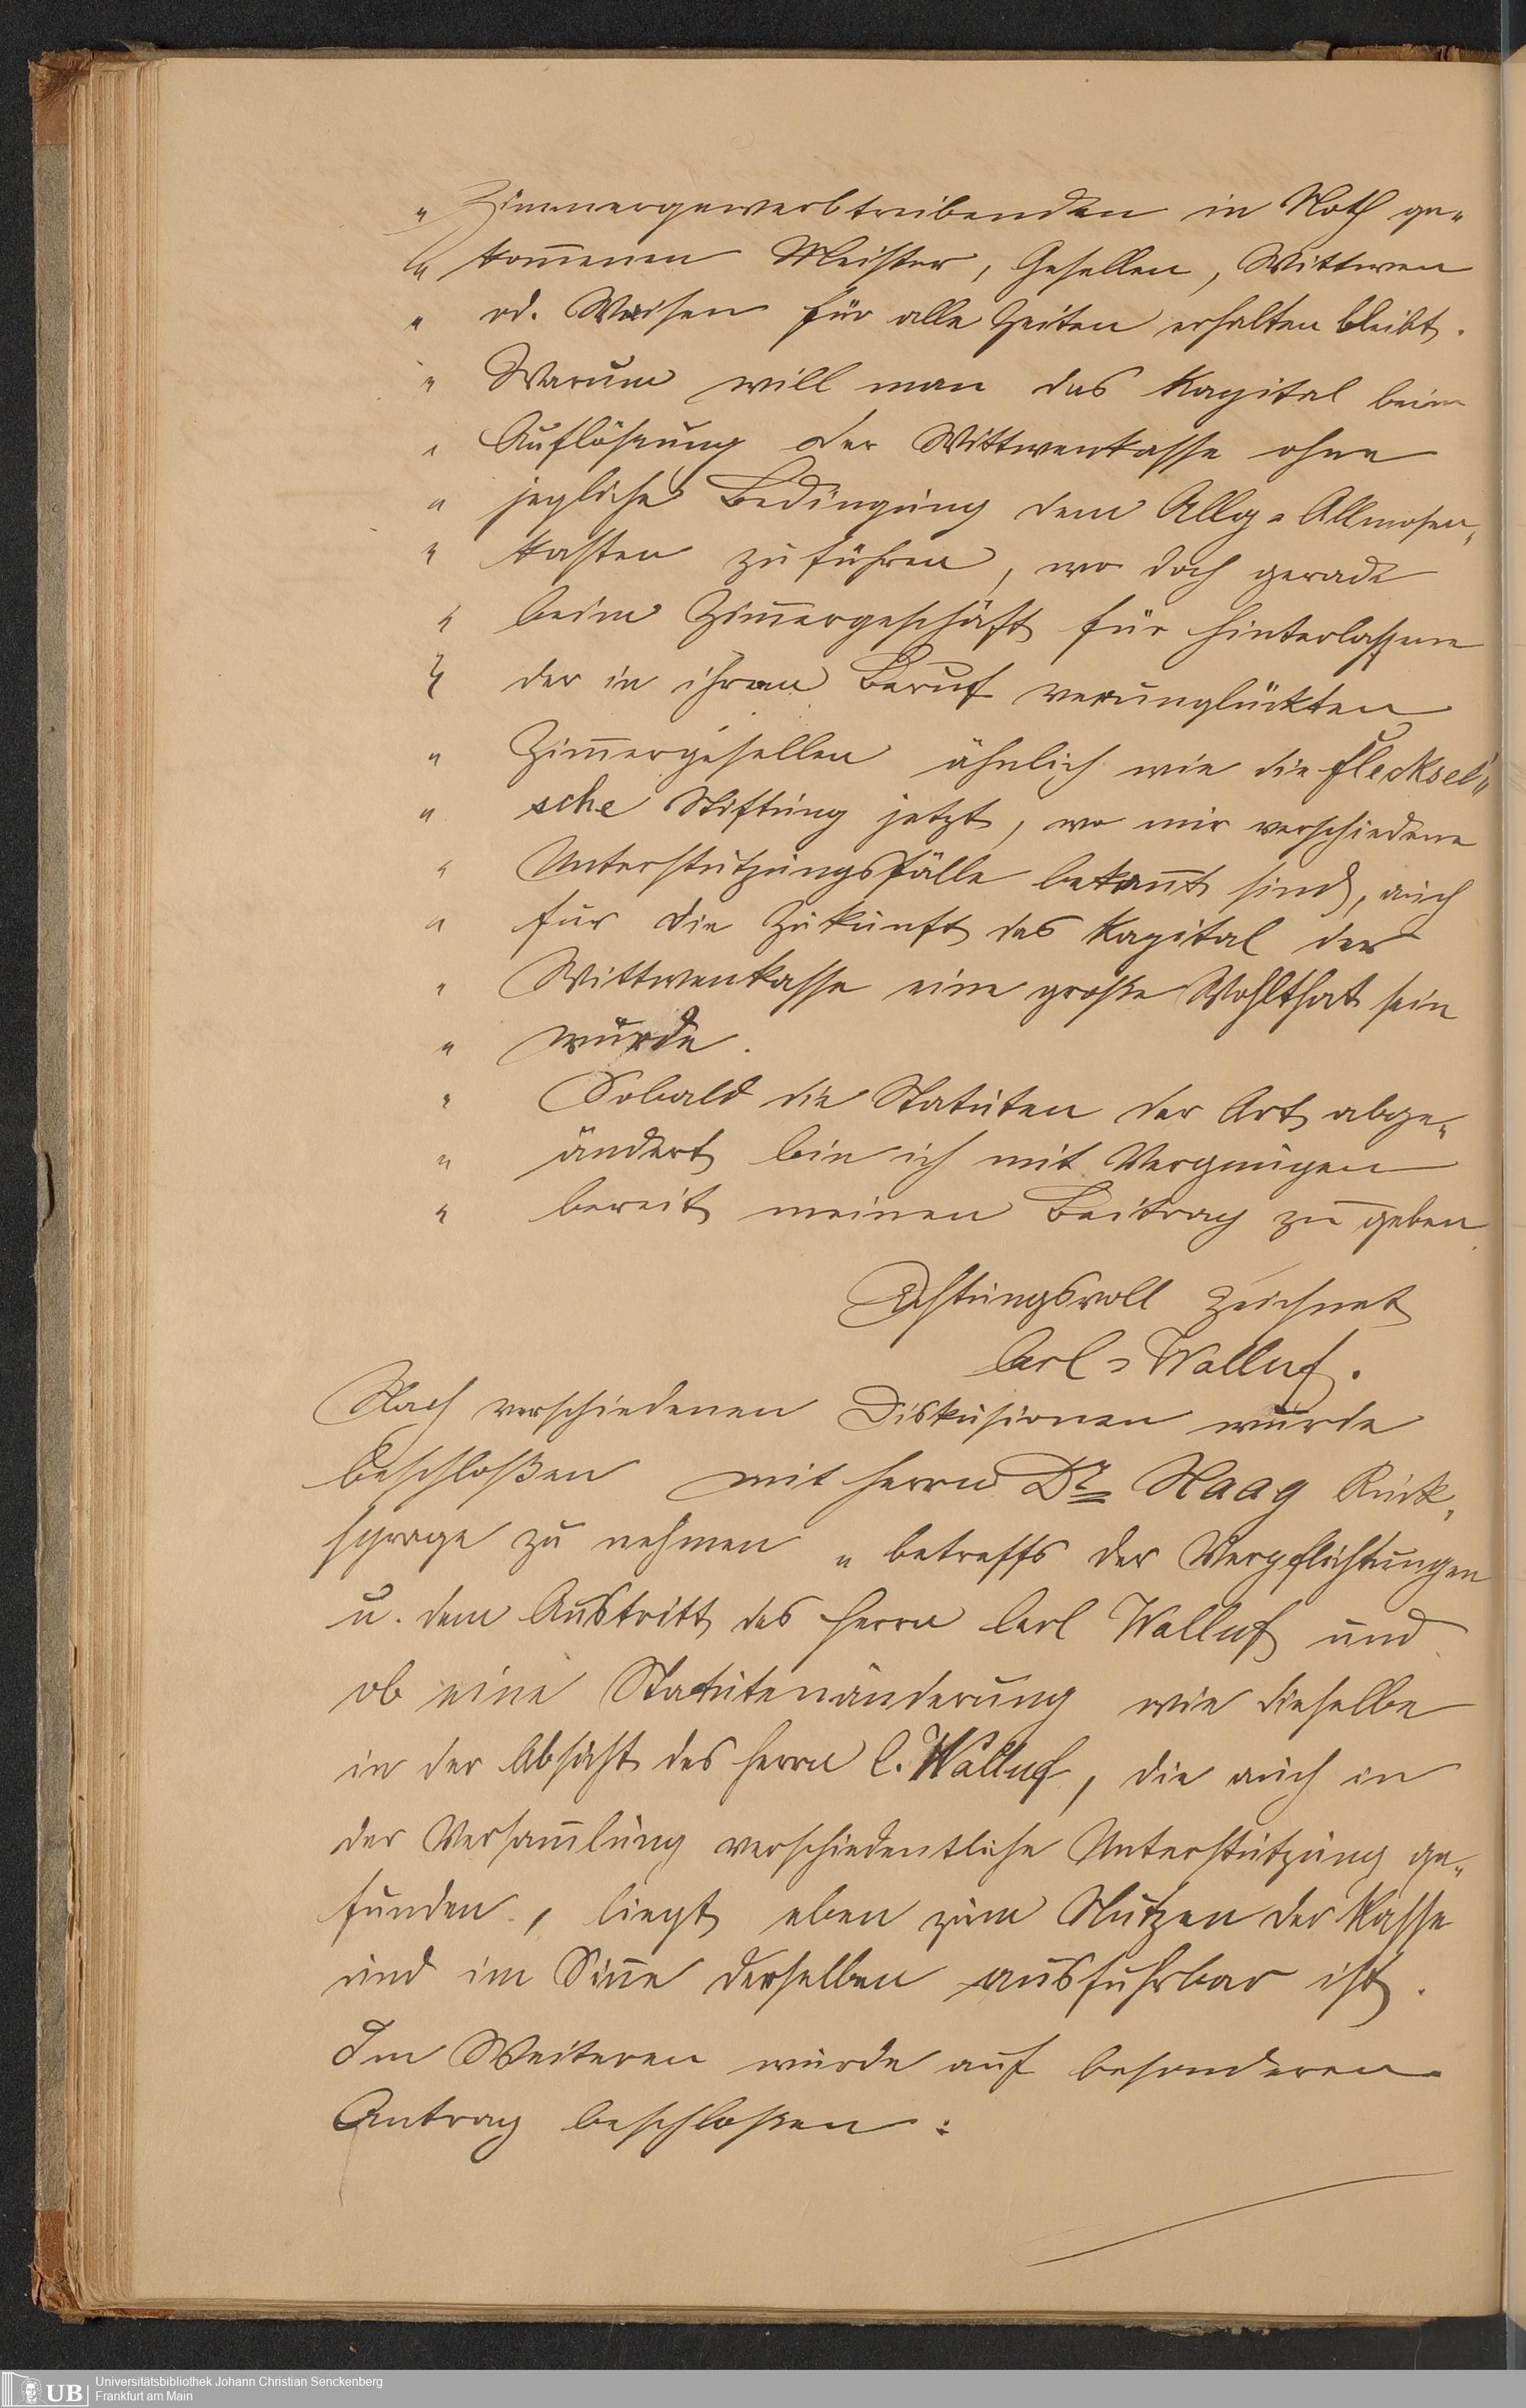 „ Zimmergewerbtreibenden in Noth ge„
„ kom̅enen Meister, Gesellen, Wittwen
„ od. Waisen für alle Zeiten erhalten bleibt.
„ Warum will man das Kapital beim
„ Auflösung der Wittwenkasse ohne
„ jegliche Bedingung dem Allg. Allmosen„
„ kasten zuführen, wo doch gerade
„ beim Zim̅ergeschäft für Hinterlassene
„ der in ihrem Beruf verunglückten
„ Zim̅ergesellen ähnlich wie die Flecksel'„
„ sche Stiftung jetzt, wo mir verschiedene
„ Unterstützungsfälle bekan̅t sind, auch
„ für die Zukunft das Kapital der
„ Wittwenkasse eine große Wohlthat sein
„ würde.
„ Sobald die Statuten der Art abge„
„ ändert bin ich mit Vergnügen
„ bereit meinen Beitrag zu geben
Achtungsvoll zeichnet
Carl Walluf.
Nach verschiedenen Diskusionen wurde
beschloßen mit Herrn Dr. Haag Rück„
sprage zu nehmen „ betreffs der Verpflichtungen
u. dem Austritt des Herrn Carl Walluf und
ob eine Statutenänderung wie dieselbe
in der Absicht des Herrn C. Walluf, die auch in
der Versam̅lung verschiedentliche Unterstützung ge„
funden, liegt eben zum Nutzen der Kasse
und im Sin̅e derselben ausführbar ist.
Im Weiteren wurde auf besonderen
Antrag beschloßen:
UB Universitätsbibliothek Johann Christian Senckenberg
Frankfurt am Main